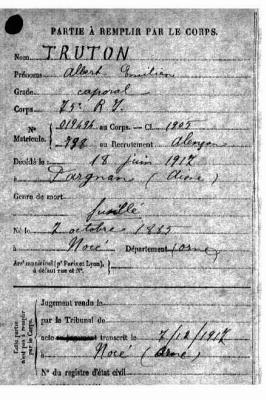 PARTIE À REMPLIR PAR LE CORPS.
Nom TRUTON
Prénoms Albert Emilien
Grade caporal
Corps 75e R I.
N° 019494 au Corps. — Cl. 1905
Matricule. 798 au Recrutement Alençon
Décédé le 18 juin 1917
à Pargnan (Aisne)
Genre de mort
fusillé
Né le 7 octobre 1885
à Nocé Département Orne
Arrt municipal (pr Paris et Lyon), à défaut rue et N°.
Cette partie n'est pas à remplir par le Corps.
Jugement rendu le
par le Tribunal de
acte ou jugement transcrit le 7/12/1917
à Nocé (Orne)
N° du registre d'état civil